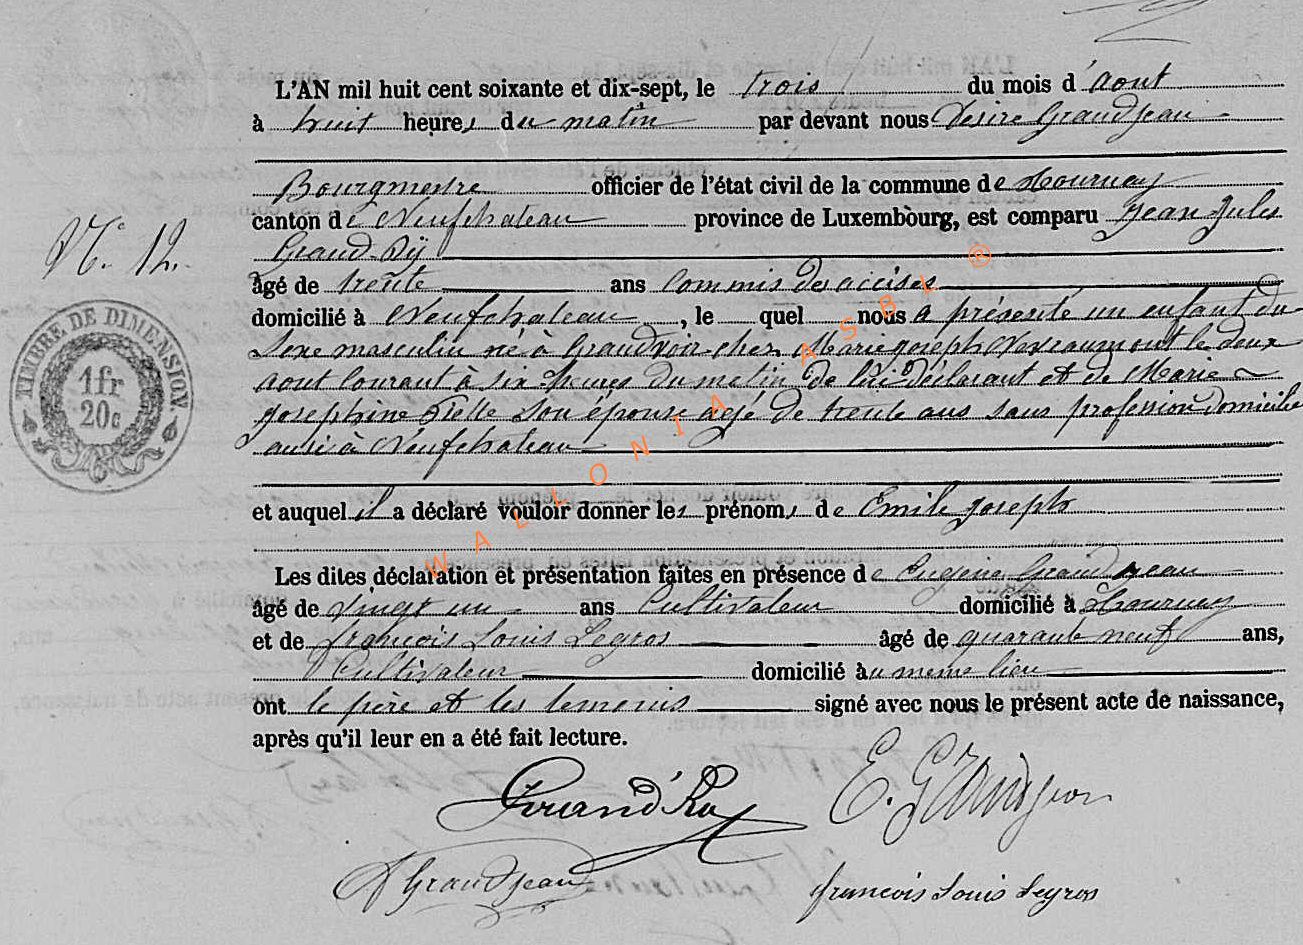 L'AN mil huit cent soixante et dix-sept, le trois du mois d'aout
à huit heures du matin par devant nous Desiré Grandjean
Bourgmestre officier de l'état civil de la commune de Tournay
canton de Neufchateau province de Luxembòurg, est comparu Jean Jules
N° 12.
Grand Ry
âgé de trente ans Commis des accises
domicilié à Neufchateau, le quel nous a présenté un enfant du
Sexe masculin né à Grandvoir chez Marie Joseph le deux
aout courant à six heures du matin de lui déclarant et de Marie
Josephine son épouse agé de trente ans sans profession domicilié
aussi à Neufchateau
TIMBRE DE DIMENSION.
1 fr
20c
et auquel il a déclaré vouloir donner les prénoms de Emile Joseph
Les dites déclaration et présentation faites en présence de Eugène Grandjean
âgé de vingt un ans Cultivateur domicilié à Tournay
et de François Louis Legros âgé de quarante neuf ans,
Cultivateur domicilié au meme lieu
ont le père et les temoins signé avec nous le présent acte de naissance,
après qu'il leur en a été fait lecture.
WALLONIA ASBL ®
Grand'Ry E. Grandjean
D Grandjean françois Louis Legros